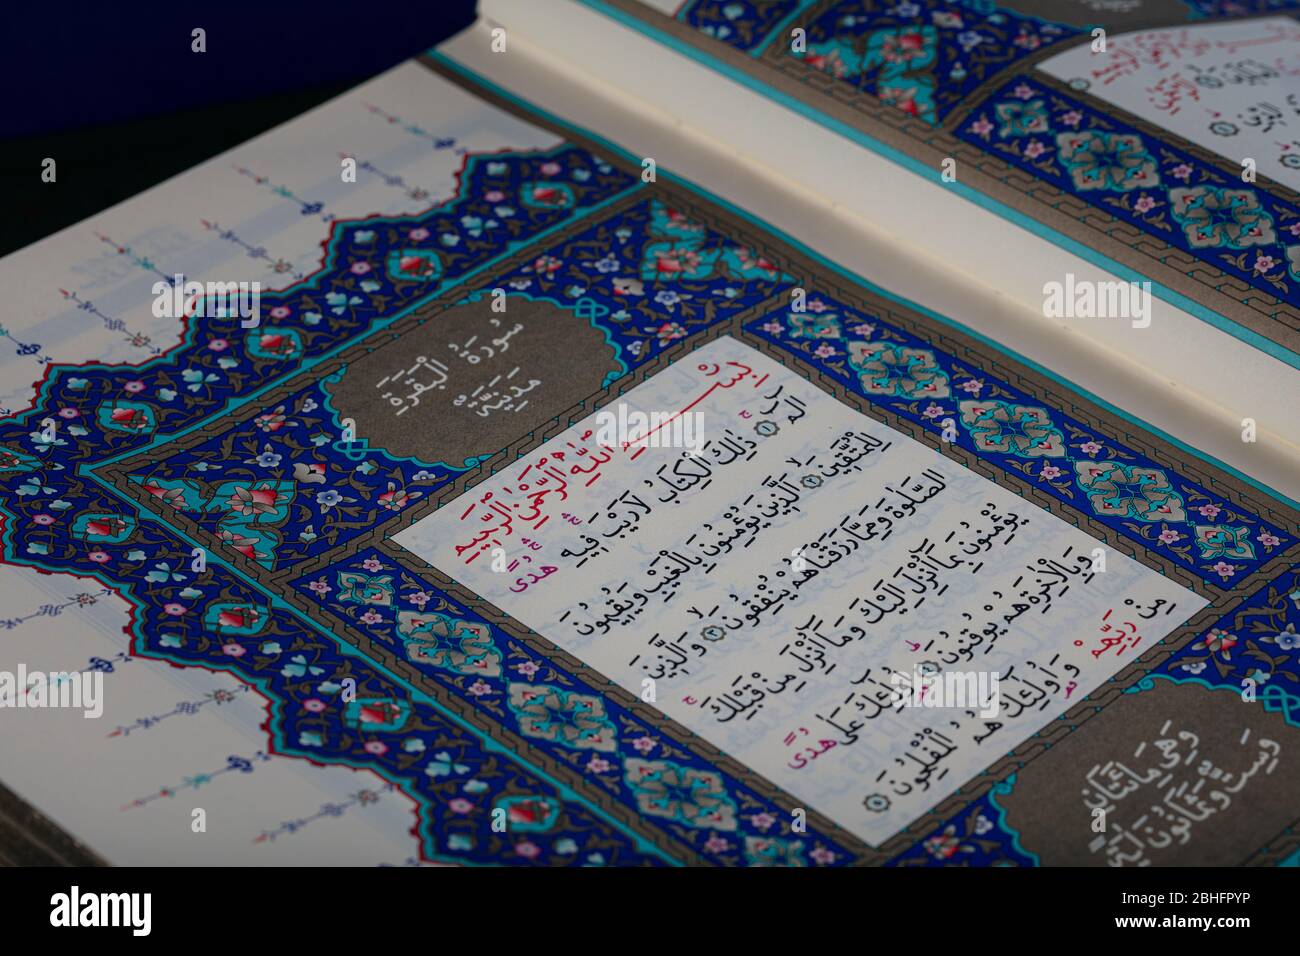 سُورَةُ الْبَقَرَةِ
مَدَنِيَّةٌ
بِسْمِ اللّٰهِ الرَّحْمٰنِ الرَّحِيمِ
الٓمٓ ﴿١﴾ ذٰلِكَ الْكِتَابُ لَا رَيْبَ فِيهِ هُدًى
لِلْمُتَّقِينَ ﴿٢﴾ اَلَّذِينَ يُؤْمِنُونَ بِالْغَيْبِ وَيُقِيمُونَ
الصَّلٰوةَ وَمِمَّا رَزَقْنَاهُمْ يُنْفِقُونَ ﴿٣﴾ وَالَّذِينَ
يُؤْمِنُونَ بِمَآ اُنْزِلَ اِلَيْكَ وَمَآ اُنْزِلَ مِنْ قَبْلِكَ
وَبِالْاٰخِرَةِ هُمْ يُوقِنُونَ ﴿٤﴾ اُولٰٓئِكَ عَلٰى هُدًى
مِنْ رَبِّهِمْ وَاُولٰٓئِكَ هُمُ الْمُفْلِحُونَ ﴿٥﴾
وَهِيَ مِائَتَانِ
وَسِتٌّ وَثَمَانُونَ اٰيَةً
alamy
Image ID: 2BHFPYP
www.alamy.com